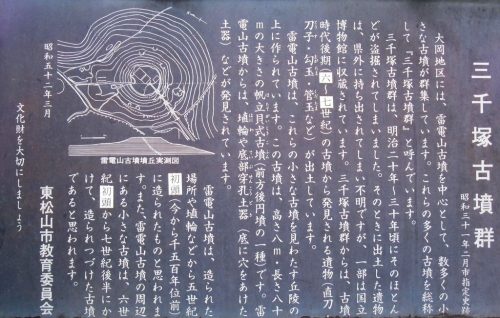 三千塚古墳群
昭和三十一年二月市指定史跡
大岡地区には、雷電山古墳を中心として、数多くの小
さな古墳が群集しています。これらの多くの古墳を総称
して『三千塚古墳群』と呼んでいます。
三千塚古墳群は、明治二十年〜三十年頃にそのほとん
どが盗掘されてしまいました。そのときに出土した遺物
は、県外に持ち出されてしまい不明ですが、一部は国立
博物館に収蔵されています。三千塚古墳群からは、古墳
時代後期(六〜七世紀)の古墳から発見される遺物(直刀
刀子・勾玉・管玉など)が出土しています。
雷電山古墳は、これらの小さな古墳を見わたす丘陵の
上に作られています。この古墳は、高さ八m・長さ八十
mの大きさの帆立貝式古墳(前方後円墳の一種)です。雷
電山古墳からは、埴輪や底部穿孔土器(底に穴をあけた
土器)などが発見されています。
雷電山古墳は、造られた
場所や埴輪などから五世紀
初頭(今から千五百年位前)
に造られたものと思われま
す。また、雷電山古墳の周辺
にある小さな古墳は、六世
紀初頭から七世紀後半にか
けて、造られつづけた古墳
であると思われます。
雷電山古墳墳丘実測図
昭和五十二年三月
文化財を大切にしましょう
東松山市教育委員会